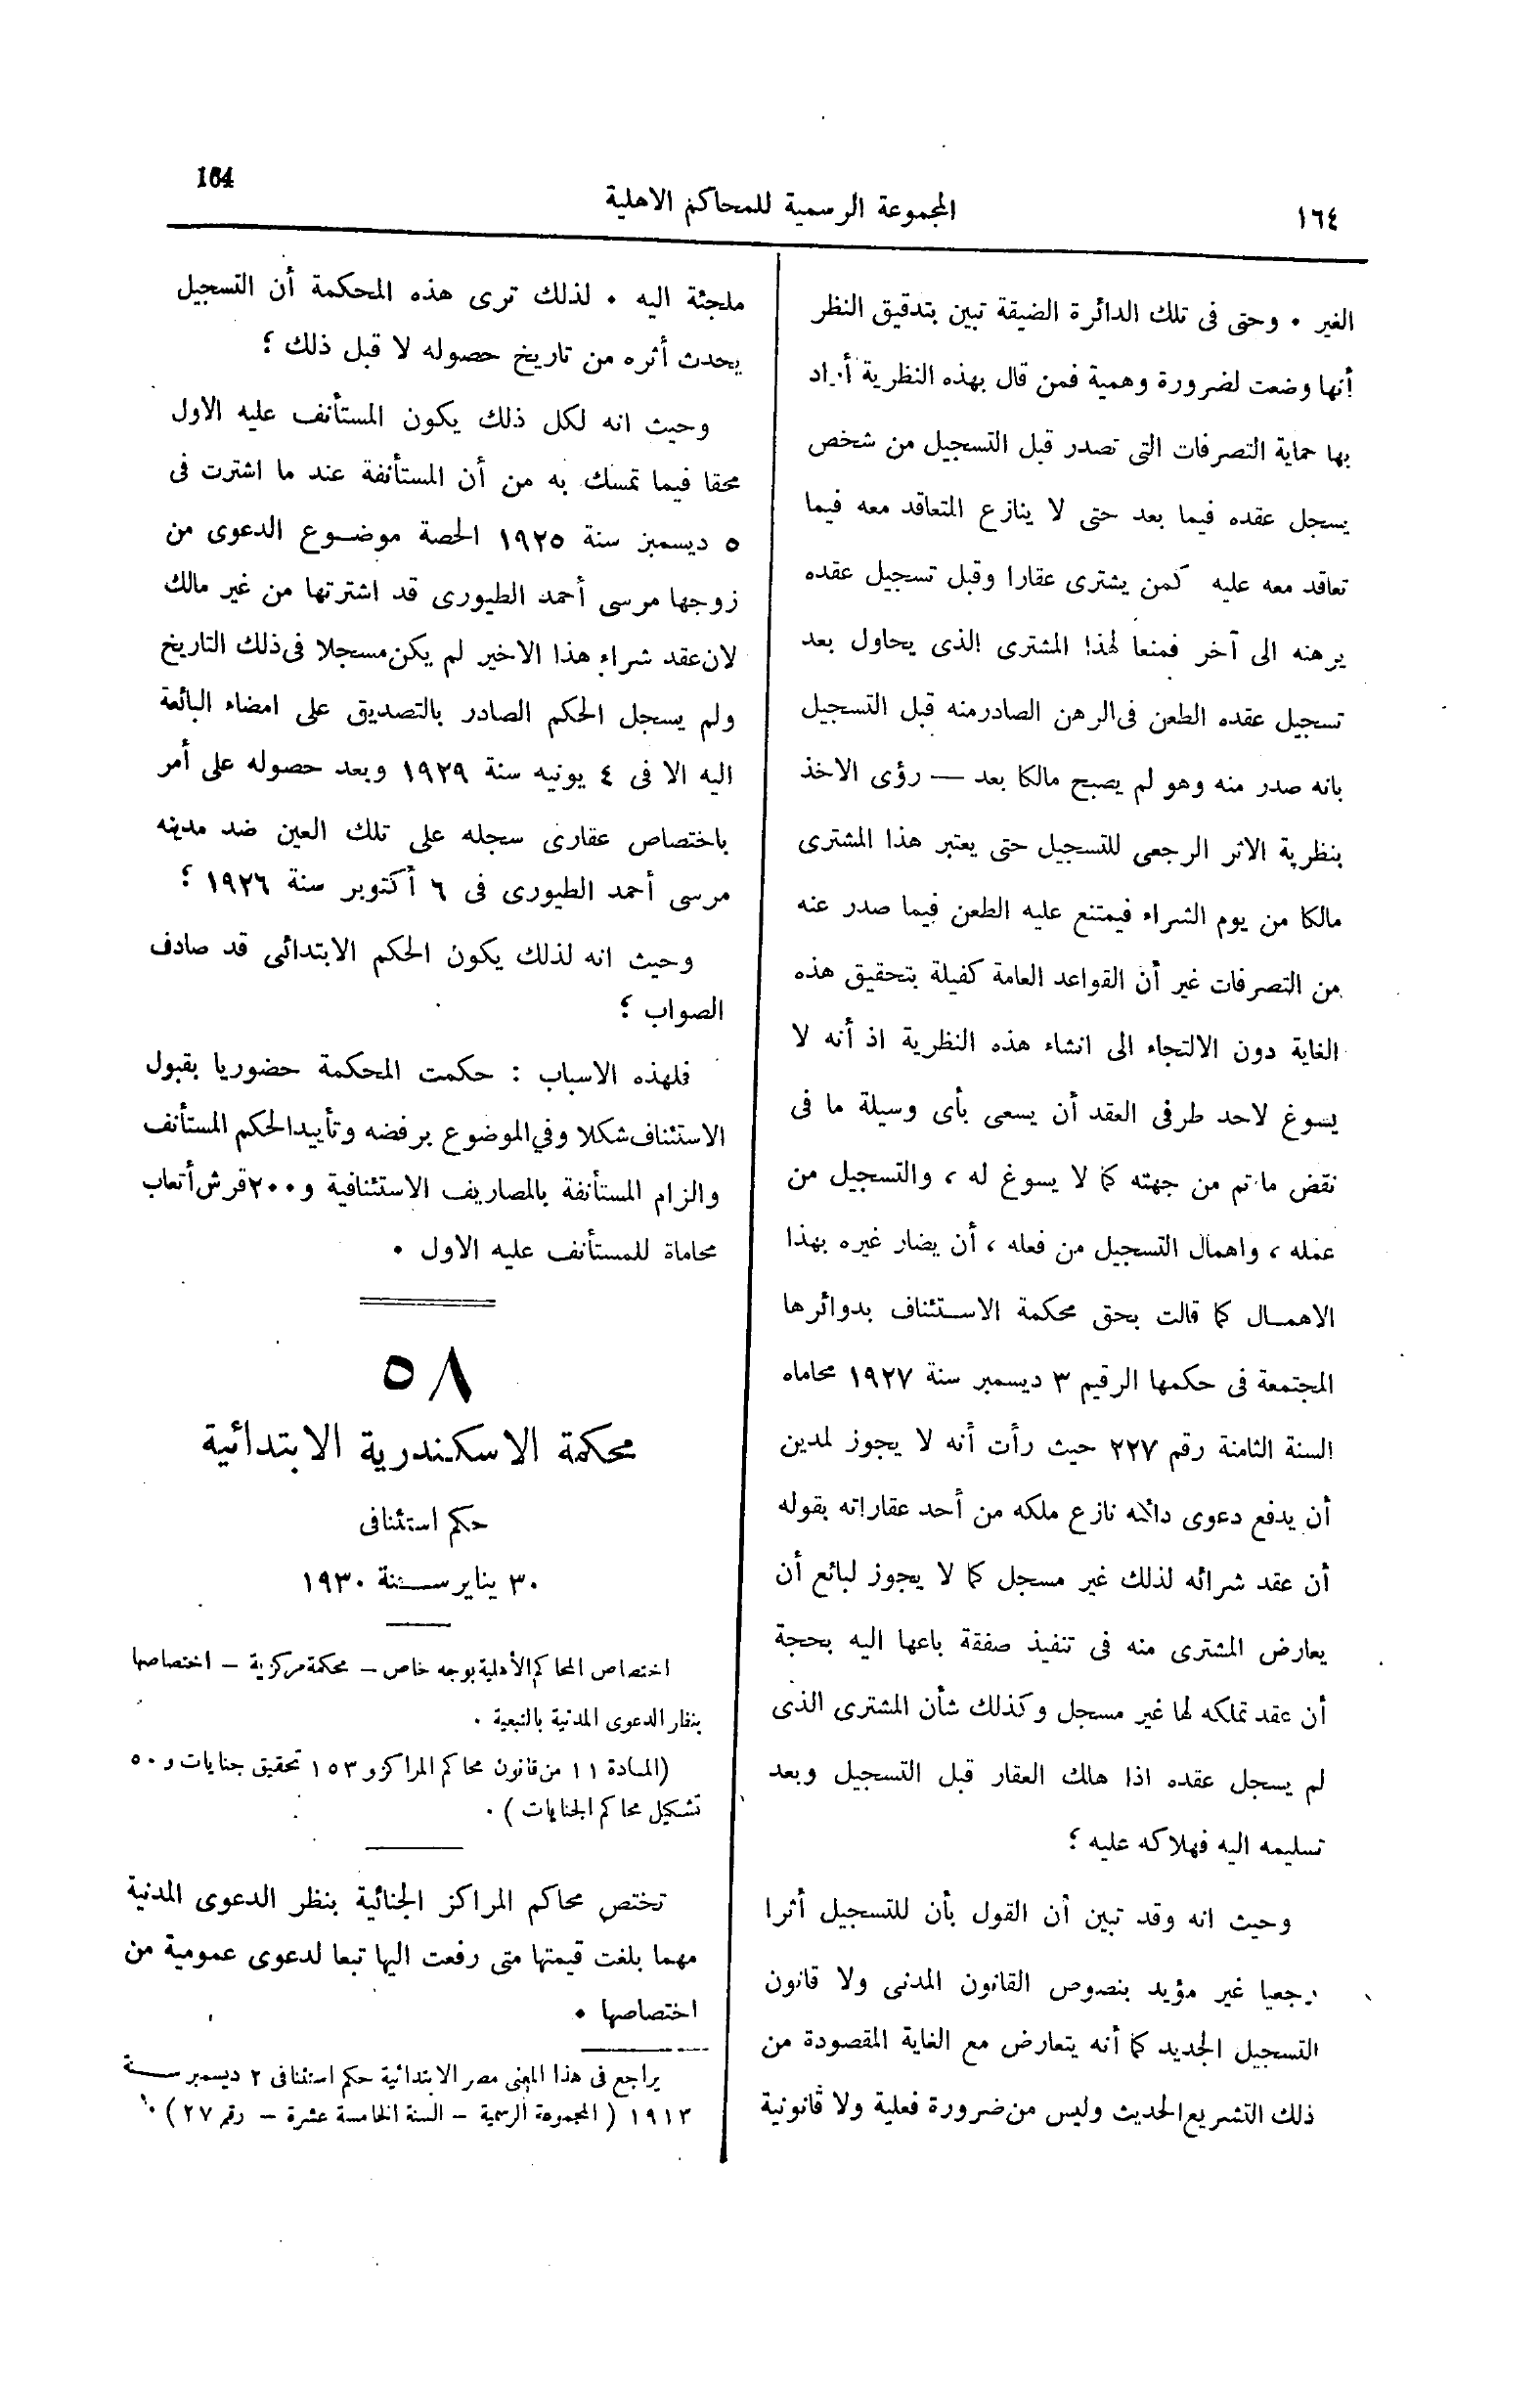 164
المجموعة الرسمية للمحاكم الاهلية
١٦٤
الغير . وحتى فى تلك الدائرة الضيقة تبين بتدقيق النظر
أنها وضعت لضرورة وهمية فمن قال بهذه النظرية أراد
بها حماية التصرفات التى تصدر قبل التسجيل من شخص
يسجل عقده فيما بعد حتى لا ينازع المتعاقد معه فيما
تعاقد معه عليه كمن يشترى عقارا وقبل تسجيل عقده
يرهنه الى آخر فمنعا لهذا المشترى الذى يحاول بعد
تسجيل عقده الطعن فى الرهن الصادر منه قبل التسجيل
بانه صدر منه وهو لم يصبح مالكا بعد — رؤى الاخذ
بنظرية الاثر الرجعى للتسجيل حتى يعتبر هذا المشترى
مالكا من يوم الشراء فيمتنع عليه الطعن فيما صدر عنه
من التصرفات غير أن القواعد العامة كفيلة بتحقيق هذه
الغاية دون الالتجاء الى انشاء هذه النظرية اذ أنه لا
يسوغ لاحد طرفى العقد أن يسعى بأى وسيلة ما فى
نقض ما تم من جهته كما لا يسوغ له ، والتسجيل من
عمله ، واهمال التسجيل من فعله ، أن يضار غيره بهذا
الاهمال كما قالت بحق محكمة الاستئناف بدوائرها
المجتمعة فى حكمها الرقيم ٣ ديسمبر سنة ١٩٢٧ محاماه
السنة الثامنة رقم ٢٢٧ حيث رأت أنه لا يجوز لمدين
أن يدفع دعوى دائنه نازع ملكه من أحد عقاراته بقوله
أن عقد شرائه لذلك غير مسجل كما لا يجوز لبائع أن
يعارض المشترى منه فى تنفيذ صفقة باعها اليه بحجة
أن عقد تملكه لها غير مسجل وكذلك شأن المشترى الذى
لم يسجل عقده اذا هلك العقار قبل التسجيل وبعد
تسليمه اليه فهلاكه عليه ؛
وحيث انه وقد تبين أن القول بأن للتسجيل أثرا
رجعيا غير مؤيد بنصوص القانون المدنى ولا قانون
التسجيل الجديد كما أنه يتعارض مع الغاية المقصودة من
ذلك التشريع الحديث وليس من ضرورة فعلية ولا قانونية
ملجئة اليه . لذلك ترى هذه المحكمة أن التسجيل
يحدث أثره من تاريخ حصوله لا قبل ذلك ؛
وحيث انه لكل ذلك يكون المستأنف عليه الاول
محقا فيما تمسك به من أن المستأنفة عند ما اشترت فى
٥ ديسمبر سنة ١٩٢٥ الحصة موضوع الدعوى من
زوجها مرسى أحمد الطيورى قد اشترتها من غير مالك
لان عقد شراء هذا الاخير لم يكن مسجلا فى ذلك التاريخ
ولم يسجل الحكم الصادر بالتصديق على امضاء البائعة
اليه الا فى ٤ يونيه سنة ١٩٢٩ وبعد حصوله على أمر
باختصاص عقارى سجله على تلك العين ضد مدينه
مرسى أحمد الطيورى فى ٦ أكتوبر سنة ١٩٢٦ ؛
وحيث انه لذلك يكون الحكم الابتدائى قد صادف
الصواب ؛
فلهذه الاسباب : حكمت المحكمة حضوريا بقبول
الاستئناف شكلا وفي الموضوع برفضه وتأييد الحكم المستأنف
والزام المستأنفة بالمصاريف الاستئنافية و ٢٠٠ قرش أتعاب
محاماة للمستأنف عليه الاول .
٥٨
محكمة الاسكندرية الابتدائية
حكم استئنافى
٣٠ يناير سنة ١٩٣٠
اختصاص المحاكم الأهلية بوجه خاص – محكمة مركزية – اختصاصها
بنظر الدعوى المدنية بالتبعية .
(المادة ١١ من قانون محاكم المراكز و ١٥٣ تحقيق جنايات و ٥٠
تشكيل محاكم الجنايات ) .
تختص محاكم المراكز الجنائية بنظر الدعوى المدنية
مهما بلغت قيمتها متى رفعت اليها تبعا لدعوى عمومية من
اختصاصها .
يراجع فى هذا المعنى مصر الابتدائية حكم استئنافى ٢ ديسمبر سنة
١٩١٣ ( المجموعة الرسمية – السنة الخامسة عشرة – رقم ٢٧ ) .